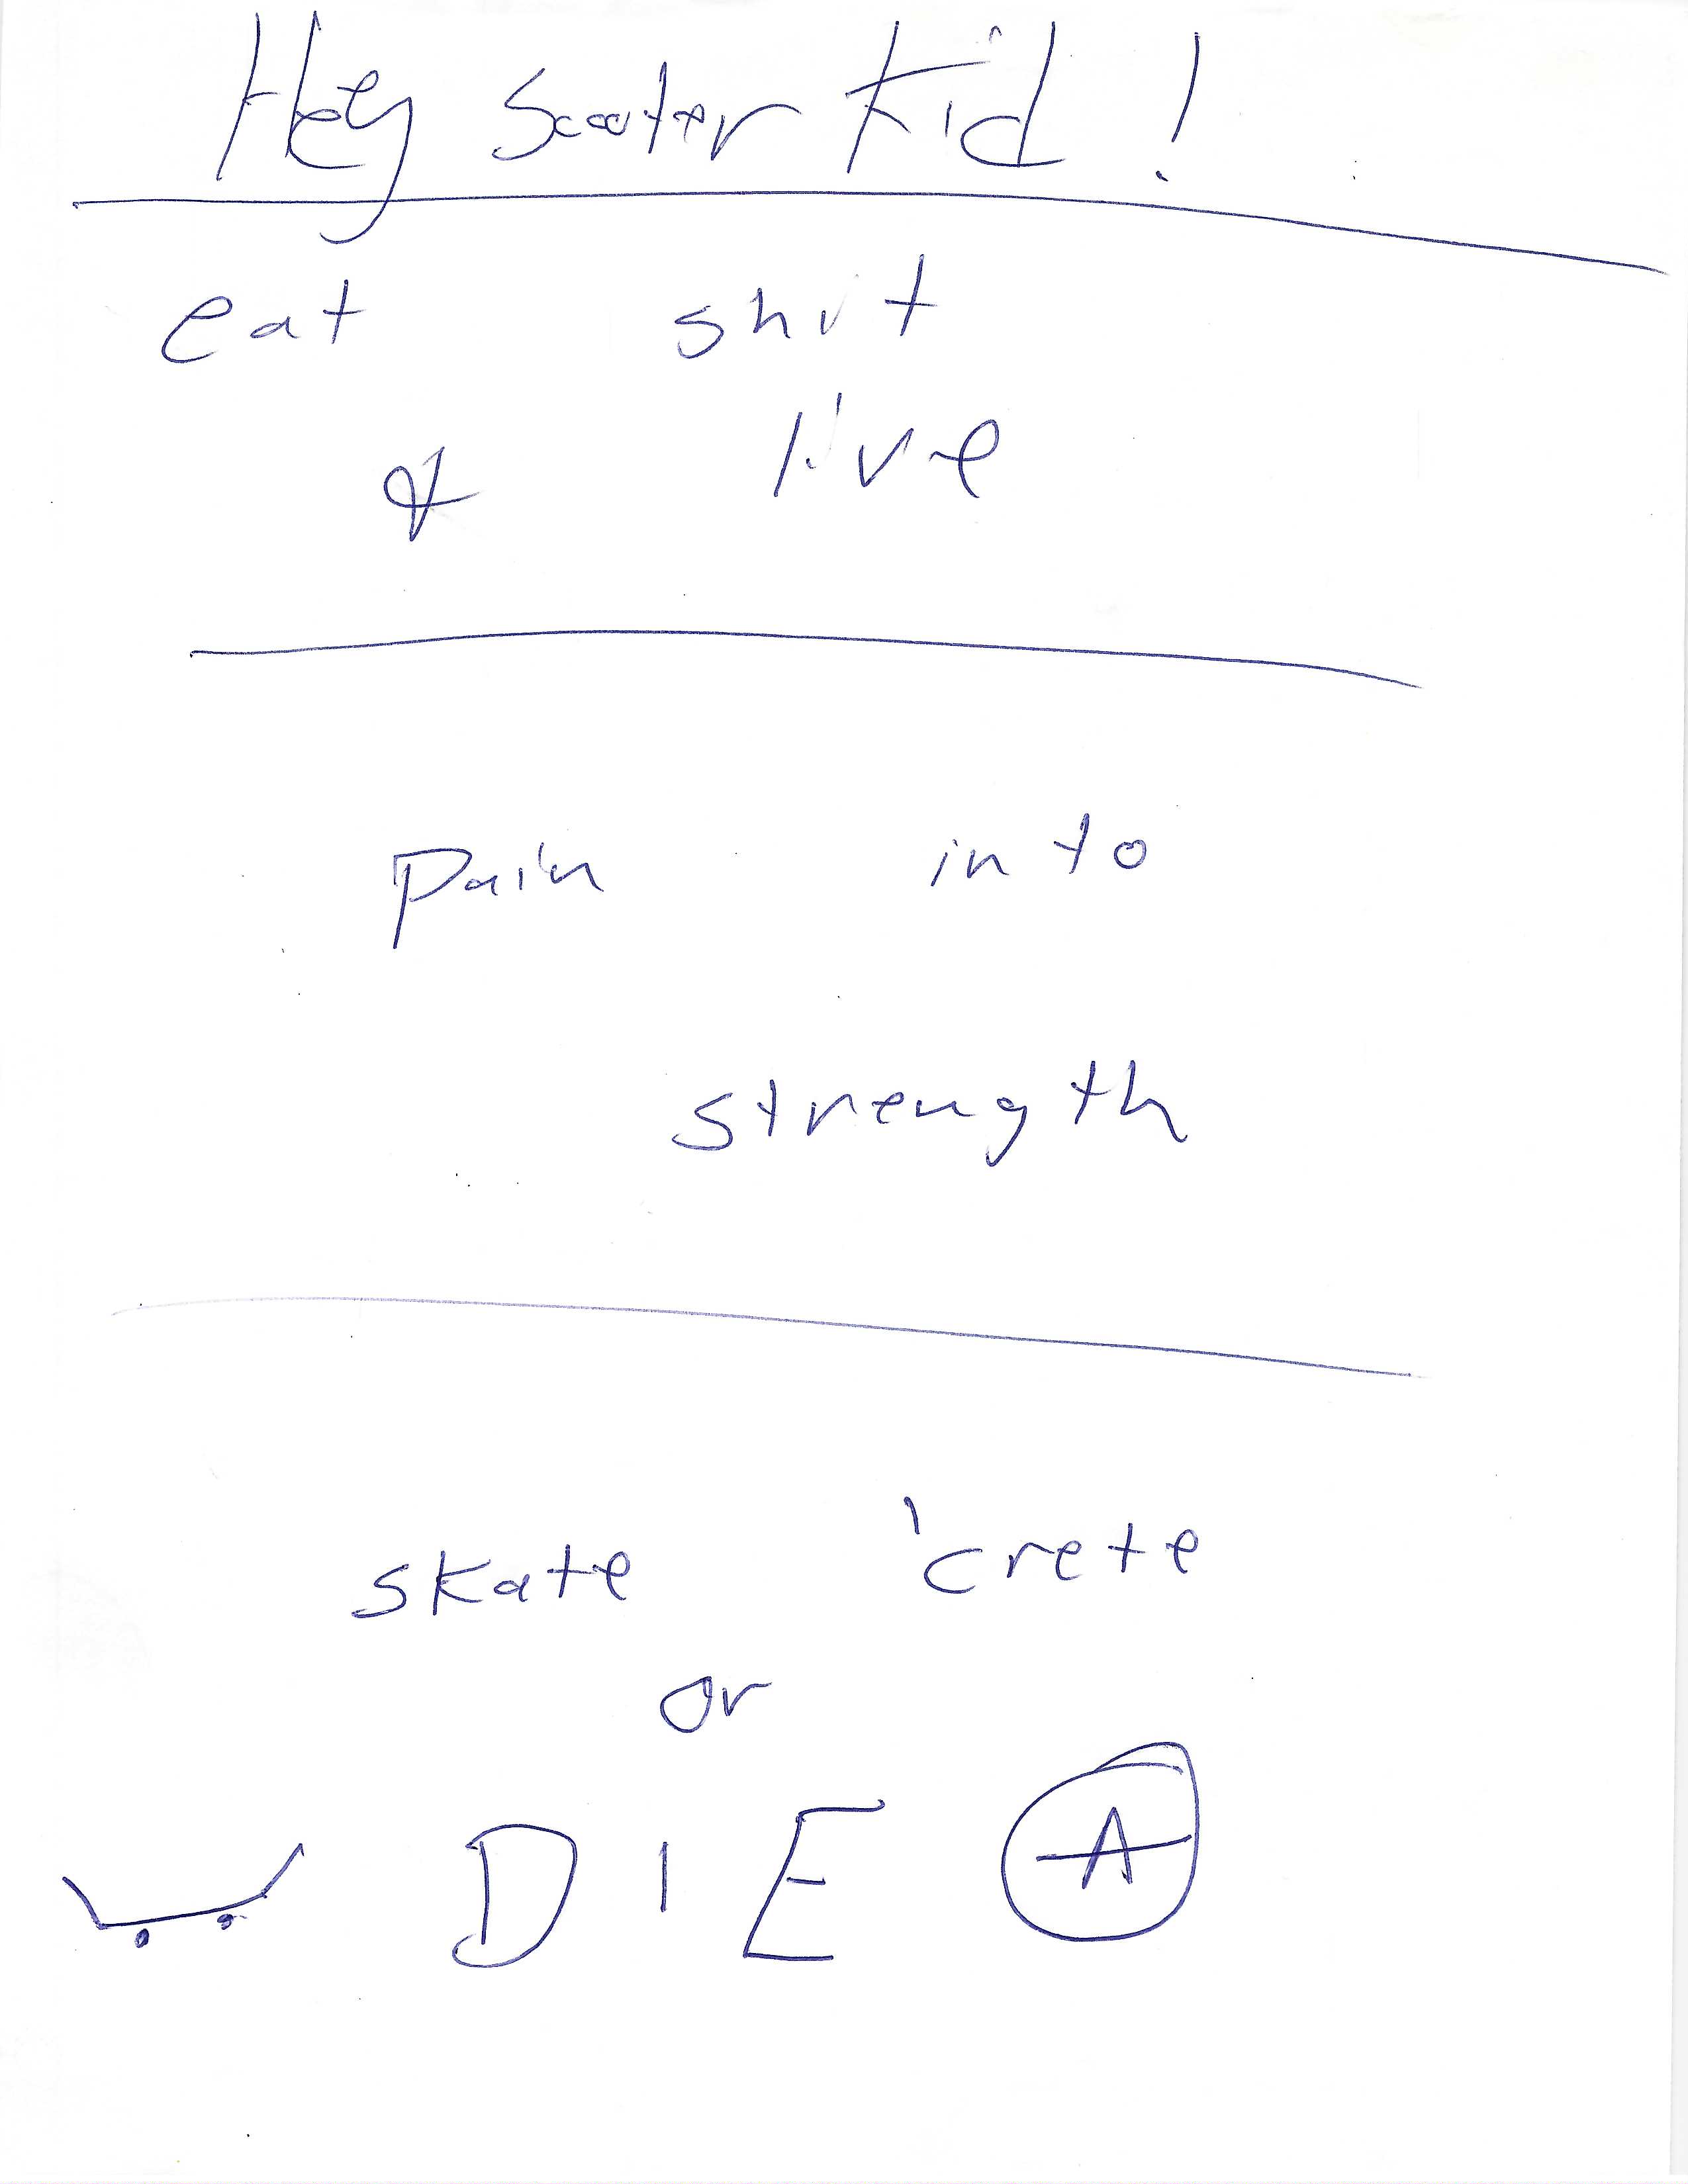 Hey Scooter Kid!
eat shit
& live
Pain into
strength
skate 'crete
or
DIE A